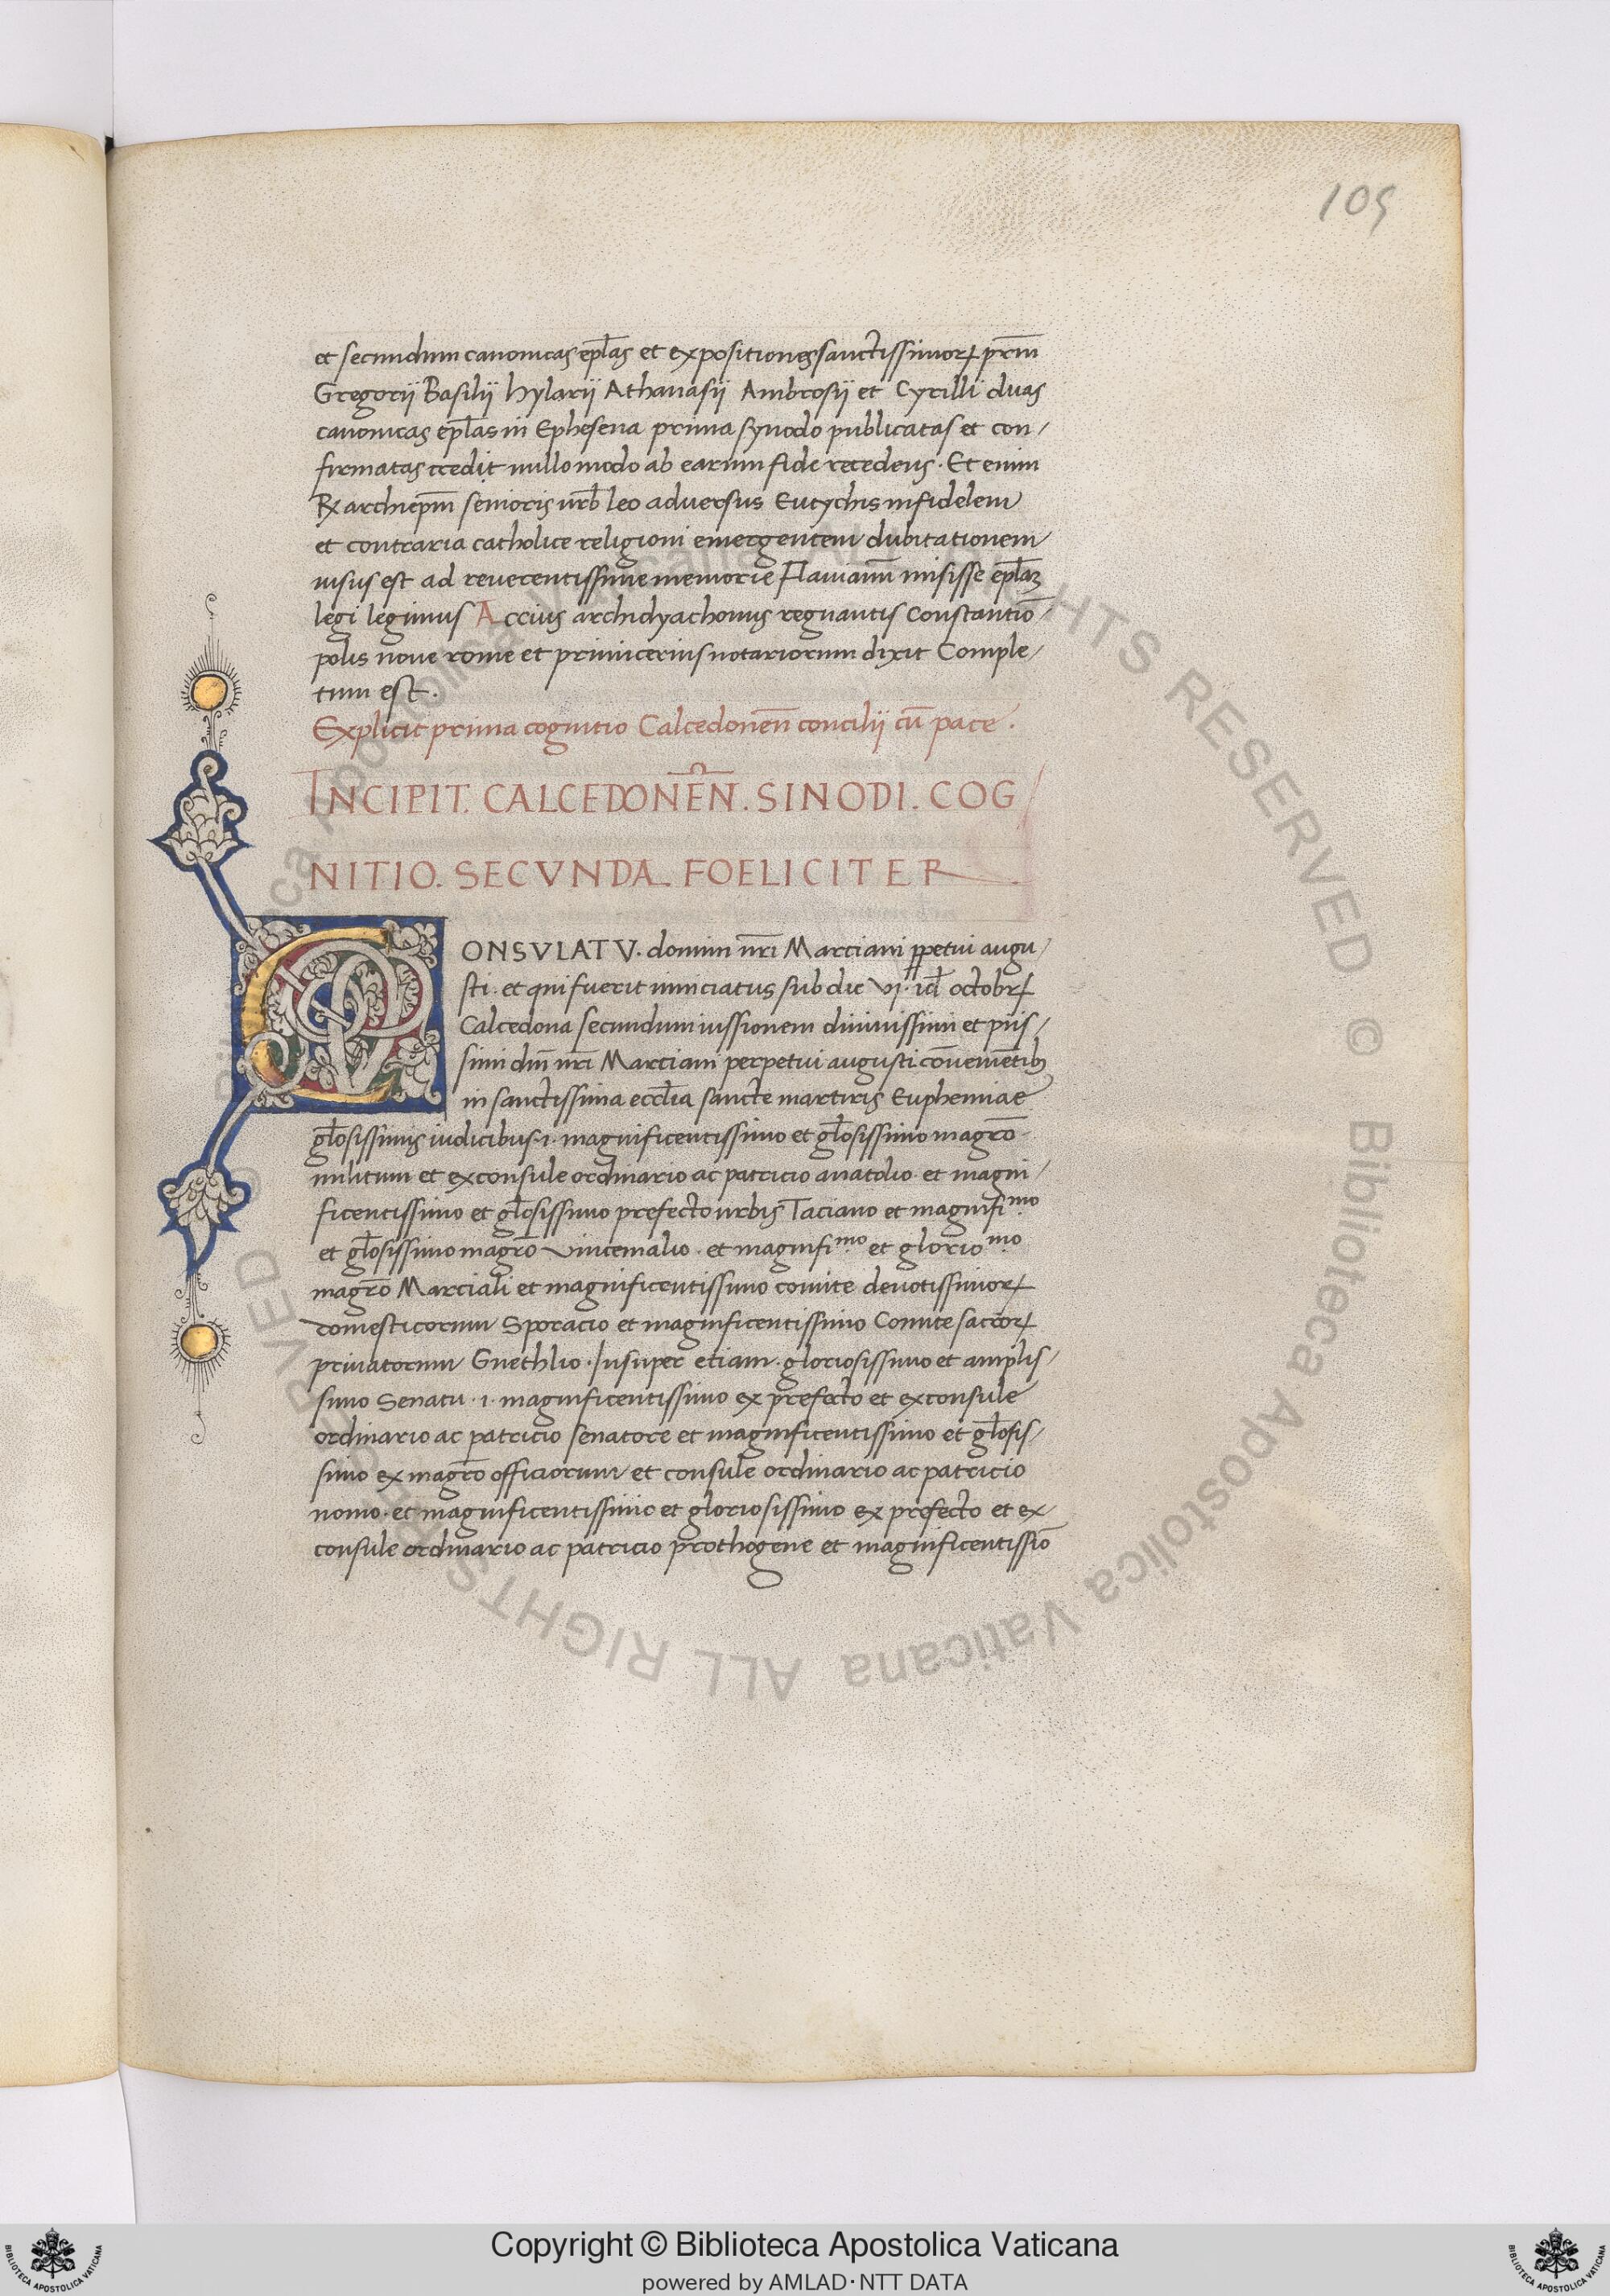 105
et secundum canonicas ep̄las et expositiones sanctissimoꝝ prm̄
Gregorii Basilii hylarii Athanasii Ambrosii et Cyrilli duas
canonicas ep̄las in Ephesena prima synodo publicatas et con/
firmatas credit nullo modo ab earum fide recedens · Et enim
℞ archiepm̄ senioris urb̄ leo adversus Eutychis infidelem
et contraria catholice religioni emergentem dubitationem
visus est ad reverentissime memorie Flavianū misisse ep̄laꝫ
legi legimus Accius archidyachonus regnantis Constantīo/
polis nove rome et primicerius notariorum dixit Comple/
tum est.
Explicit prima cognitio Calcedonen̄ concilii cū pace.
INCIPIT. CALCEDONEN̄. SINODI. COG/
NITIO. SECVNDA. FOELICITER.
CONSVLATV. domini nr̄i Marciani ꝑpetui augu/
sti · et qui fuerit nunciatus sub die vi · id̄ octobꝝ
Calcedona secundum iussionem divinissimi et piis/
simi dn̄i nr̄i Marciani perpetui augusti cōvenientibꝫ
in sanctissima eccl̄ia sancte martiris Euphemiae
gl̄osissimis iudicibus · i · magnificentissimo et gl̄osissimo magr̄o
militum et exconsule ordinario ac patricio anatolio · et magni/
ficentissimo et gl̄osissimo prefecto urbis Taciano et magnifi.mo
et gl̄osissimo magr̄o Vincemalio · et magnifi.mo et glorio.mo
magr̄o Marciali et magnificentissimo comite devotissimoꝝ
domesticorum Sporacio et magnificentissimo Comite sacroꝝ
privatorum Gnethlio · Insuper etiam · gloriosissimo et amplis/
simo Senatu · i · magnificentissimo ex prefecto et exconsule
ordinario ac patricio senatore et magnificentissimo et gl̄osis/
simo ex magr̄o officiorum et consule ordinario ac patricio
nomo · et magnificentissimo et gloriosissimo ex prefecto et ex/
consule ordinario ac patricio prothogene et magnificentissīo
Copyright © Biblioteca Apostolica Vaticana
powered by AMLAD·NTT DATA